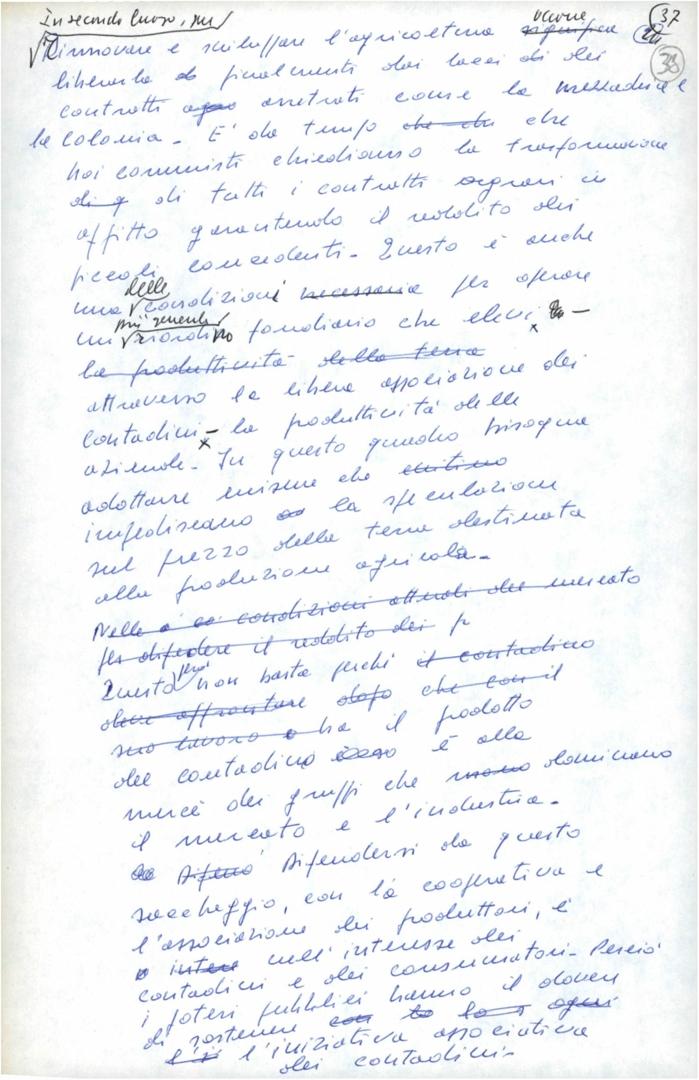 In secondo luogo, per
37
38
occorre
Rinnovare e sviluppare l'agricoltura significa
liberarla finalmente dai lacci di dei
contratti arretrati come la mezzadria e
la colonia - E' da tempo che che
noi comunisti chiediamo la trasformazione
di tutti i contratti agrari in
affitto garantendo il reddito dei
piccoli concedenti - Questo è anche
delle
una condizioni necessaria per operare
più generale
un riordino fondiario che elevi
la produttività della terra
attraverso la libera associazione dei
contadini - la produttività delle
aziende - In questo quadro bisogna
adottare misure che evitino
impediscano la speculazione
sul prezzo della terra destinata
alla produzione agricola -
Nelle condizioni attuali del mercato
per difendere il reddito dei p
però
Questo non basta perché il contadino
deve affrontare dopo che con il
suo lavoro ha il prodotto
del contadino è alla
mercè dei gruppi che dominano
il mercato e l'industria -
Difendersi da questo
saccheggio, con la cooperativa e
l'associazione dei produttori, è
nell'interesse dei
contadini e dei consumatori - Perciò
i poteri pubblici hanno il dovere
di sostenere ogni
l'iniziativa associativa
dei contadini -